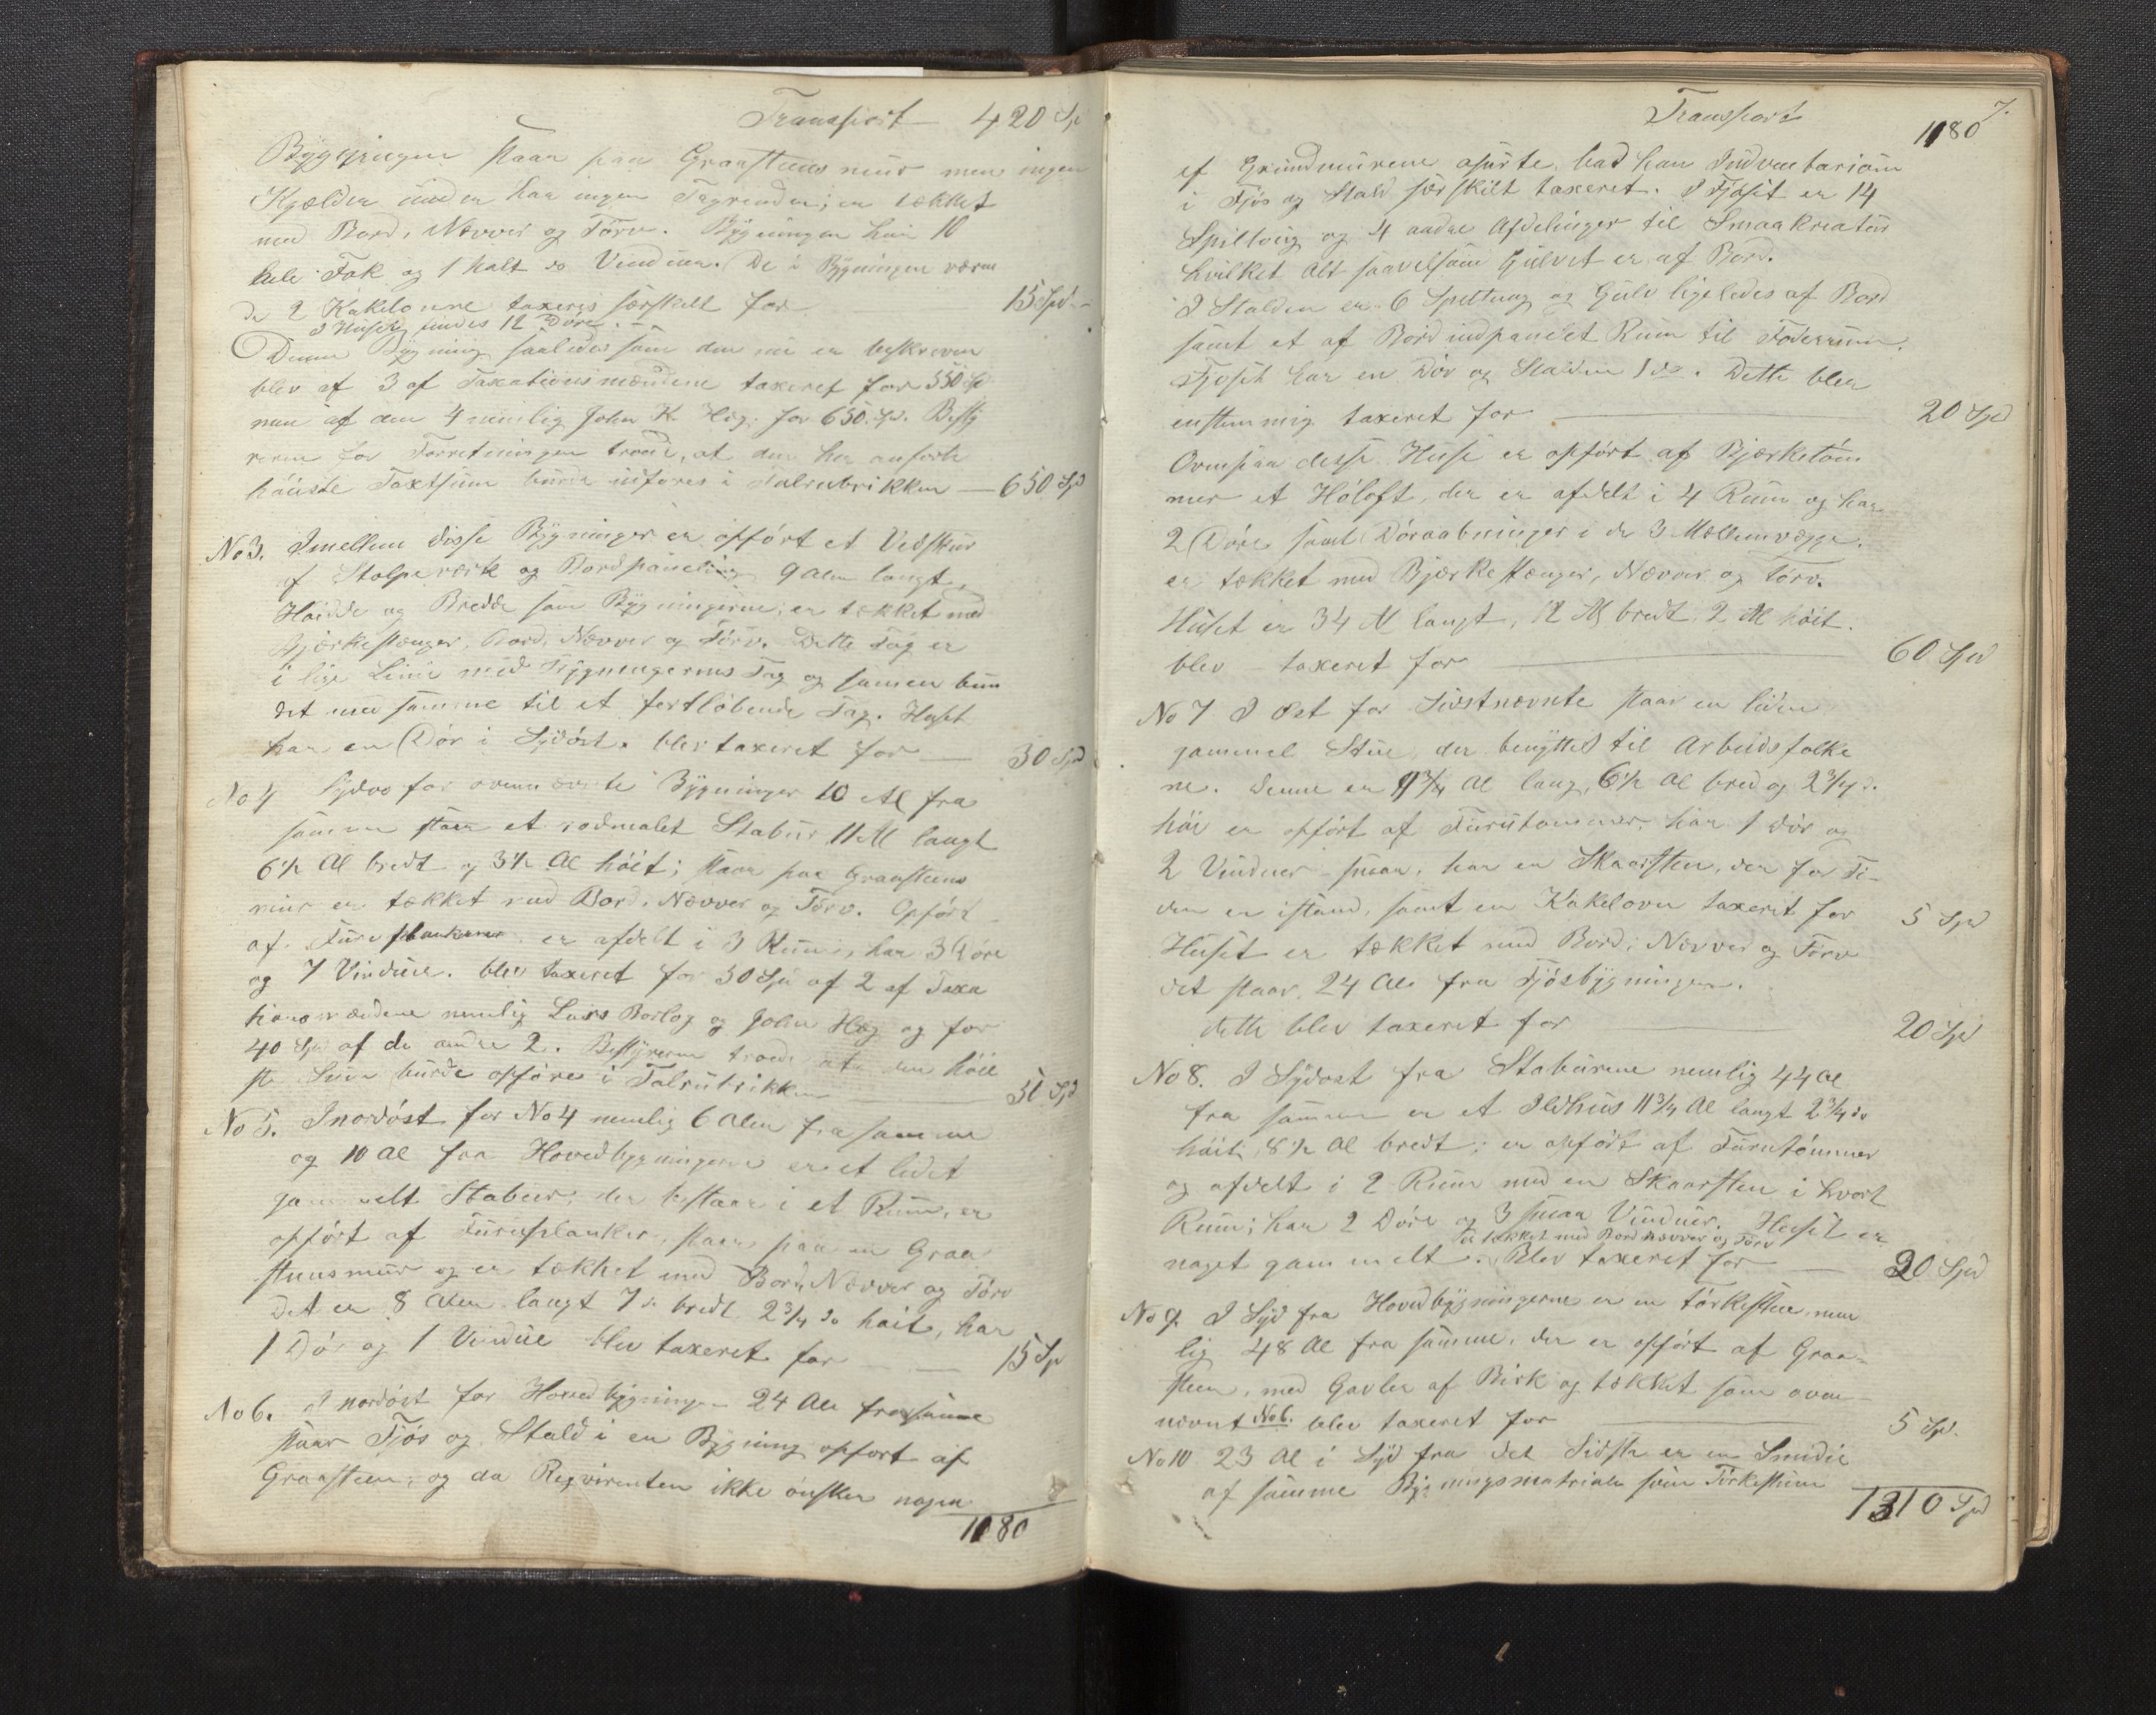 Transport 420 Sp
Bygningen staar paa Graasteens mur men ingen
Kjælder under har ingen Tagrender; er tækket
med Bord, Næver og Törv. Bygningen har 10
hele Fak og 1 halt do Vinduer. De i Bygningen værende
2 Kakelovne taxeres særskilt for 15 Spd -
I Huset findes 12 Döre.
Denne Bygning saaledes som den nu er beskreven
blev af 3 af Taxationsmændene taxeret for 550 Sp
men af den 4 nemlig John K. Hæg. for 650 Sp. Besty
reren for Forretningen troede, at den her anförte
höieste Taxtsum burde udföres i Talrubrikken — 650 Spd
No 3. Imellem disse Bygninger er opfört et Vedskur
af Stolpeværk og Bordpaneling 9 Alen langt,
Höide og Bredde som Bygningerne; er tækket med
Bjærkestænger, Bord, Næver og Törv. Dette Tag er
i lige Linie med Bygningernes Tag og sammen bun
det med samme til et fortlöbende Tag. Huset
har en Dör i Sydöst. blev taxeret for — 30 Spd
No 4 Sydvo for ovennævnte Bygninger 10 Al fra
samme staar et rödmalet Stabur 11 Al langt
6½ Al bredt og 3½ Al höit; staar paa Graasteens
mur er tækket med Bord, Næver og Törv. Opfört
af Furuplanker er afdelt i 3 Rum, har 3 Döre
og 7 Vinduer. blev taxeret for 30 Spd af 2 af Taxa
tionsmændene nemlig Lars Borlog og John Hæg og for
40 Spd af de andre 2. Bestyreren troede at den höie
ste Sum burde opföres i Talrubrikken — Spd
No 5. I nordöst for No 4 nemlig 6 Alen fra samme
og 10 Al fra Hovedbygningerne er et lidet
gammelt Stabur; der bestaar i et Rum, er
opfört af Furuplanker, staar paa en Graa
steensmur og er tækket med Bord, Næver og Törv
Det er 8 Alen langt 7 do bredt 2¾ do höit, har
1 Dör og 1 Vindue blev taxeret for — 15 Sp
No 6. I nordöst for Hovedbygningen 24 Al fra samme
staar Fjös og Stald i en Bygning opfört af
Graasteen; og da Reqvirenten ikke önsker nogen
1080
7.
Transport 1080
af Grundmurene asurte. bad han Indventarium
i Fjös og Stald særskilt taxeret. I Fjöset er 14
Spiltoug og 4 andre Afdelinger til Smaakreaturer
hvilket Alt saavelsom Gulvet er af Bord.
I Stalden er 6 Spiltoug og Gulv ligeledes af Bord
samt et af Bord indpanelet Rum til Foderrum.
Fjöset har en Dör og Stalden 1 do. Dette blev
enstemmig taxeret for — 20 Spd
Ovenpaa disse Huse er opfört af Bjærketöm
mer et Höloft, der er afdelt i 4 Rum og har
2 Döre samt Döraabninger i de 3 Mellemvægge.
er tækket med Bjærkestænger, Næver og Törv.
Huset er 34 Al langt, 12 Al bredt 2 Al höit.
blev taxeret for — 60 Spd
No 7 I Öst for Sidstnævnte staar en liden
gammel Stue der benyttes til Arbeidsfolke
ne. Denne er 9¾ Al lang, 6½ Al bred og 2¾ do.
höi er opfört af Furutömmer, har 1 Dör og
2 Vinduer smaa, har en Skaarsten, der for Ti-
den er istand, samt en Kakelovn taxeret for 5 Spd
Huset er tækket med Bord, Næver og Törv
det staar 24 Al fra Fjösbygningen.
dette blev taxeret for — 20 Spd
No 8. I Sydöst fra Staburene nemlig 44 Al
fra samme er et Ildhus 11¾ Al langt 2¾ do
höit, 8½ Al bredt; er opfört af Furutömmer
og afdelt i 2 Rum med en Skaarsten i hvert
Rum; har 2 Döre og 3 smaa Vinduer. Huset er
er tækket med Bord næver og Törv
noget gammelt. Blev taxeret for — 20 Spd
No 9. I Syd fra Hovedbygningerne er en Törkestue, nem
lig 48 Al fra samme, der er opfört af Graa-
steen, med Gavler af Birk og tækket som oven-
nævnt No 6. blev taxeret for — 5 Spd.
No 10 23 Al i Syd fra det Sidste er en Smidie
af samme Bygningsmatriale som Törkestuen
1310 Spd